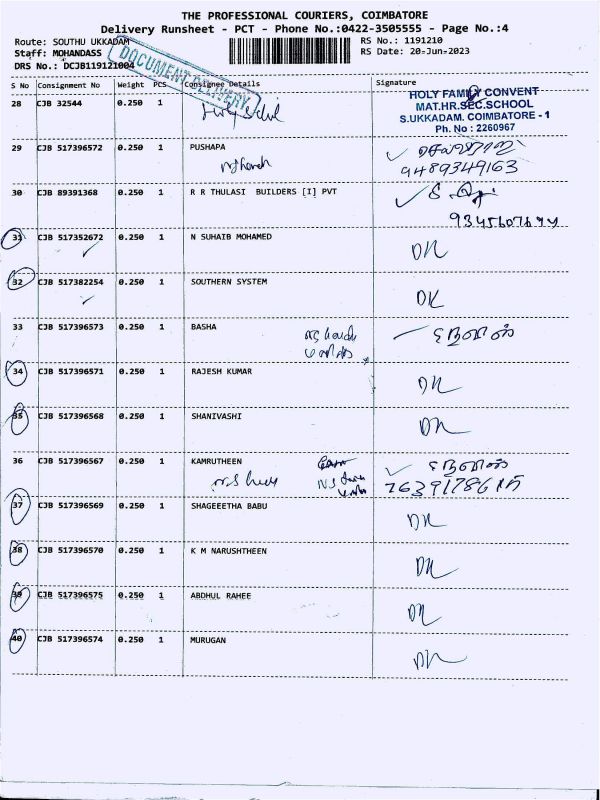 THE PROFESSIONAL COURIERS, COIMBATORE
Delivery Runsheet - PCT - Phone No.:0422-3505555 - Page No.:4
Route: SOUTHU UKKADAM
RS No.: 1191210
Staff: MOHANDASS
RS Date: 20-Jun-2023
DRS No.: DCJB119121004
DOCUMENT DELIVERY
S No Consignment No Weight PCS Consignee Details Signature
28 CJB 32544 0.250 1
HOLY FAMILY CONVENT
MAT.HR.SEC.SCHOOL
S.UKKADAM. COIMBATORE - 1
Ph. No : 2260967
29 CJB 517396572 0.250 1 PUSHAPA
9489349163
30 CJB 89391368 0.250 1 R R THULASI BUILDERS [I] PVT
31 CJB 517352672 0.250 1 N SUHAIB MOHAMED
32 CJB 517382254 0.250 1 SOUTHERN SYSTEM
33 CJB 517396573 0.250 1 BASHA
34 CJB 517396571 0.250 1 RAJESH KUMAR
35 CJB 517396568 0.250 1 SHANIVASHI
36 CJB 517396567 0.250 1 KAMRUTHEEN
37 CJB 517396569 0.250 1 SHAGEEETHA BABU
38 CJB 517396570 0.250 1 K M NARUSHTHEEN
39 CJB 517396575 0.250 1 ABDHUL RAHEE
40 CJB 517396574 0.250 1 MURUGAN